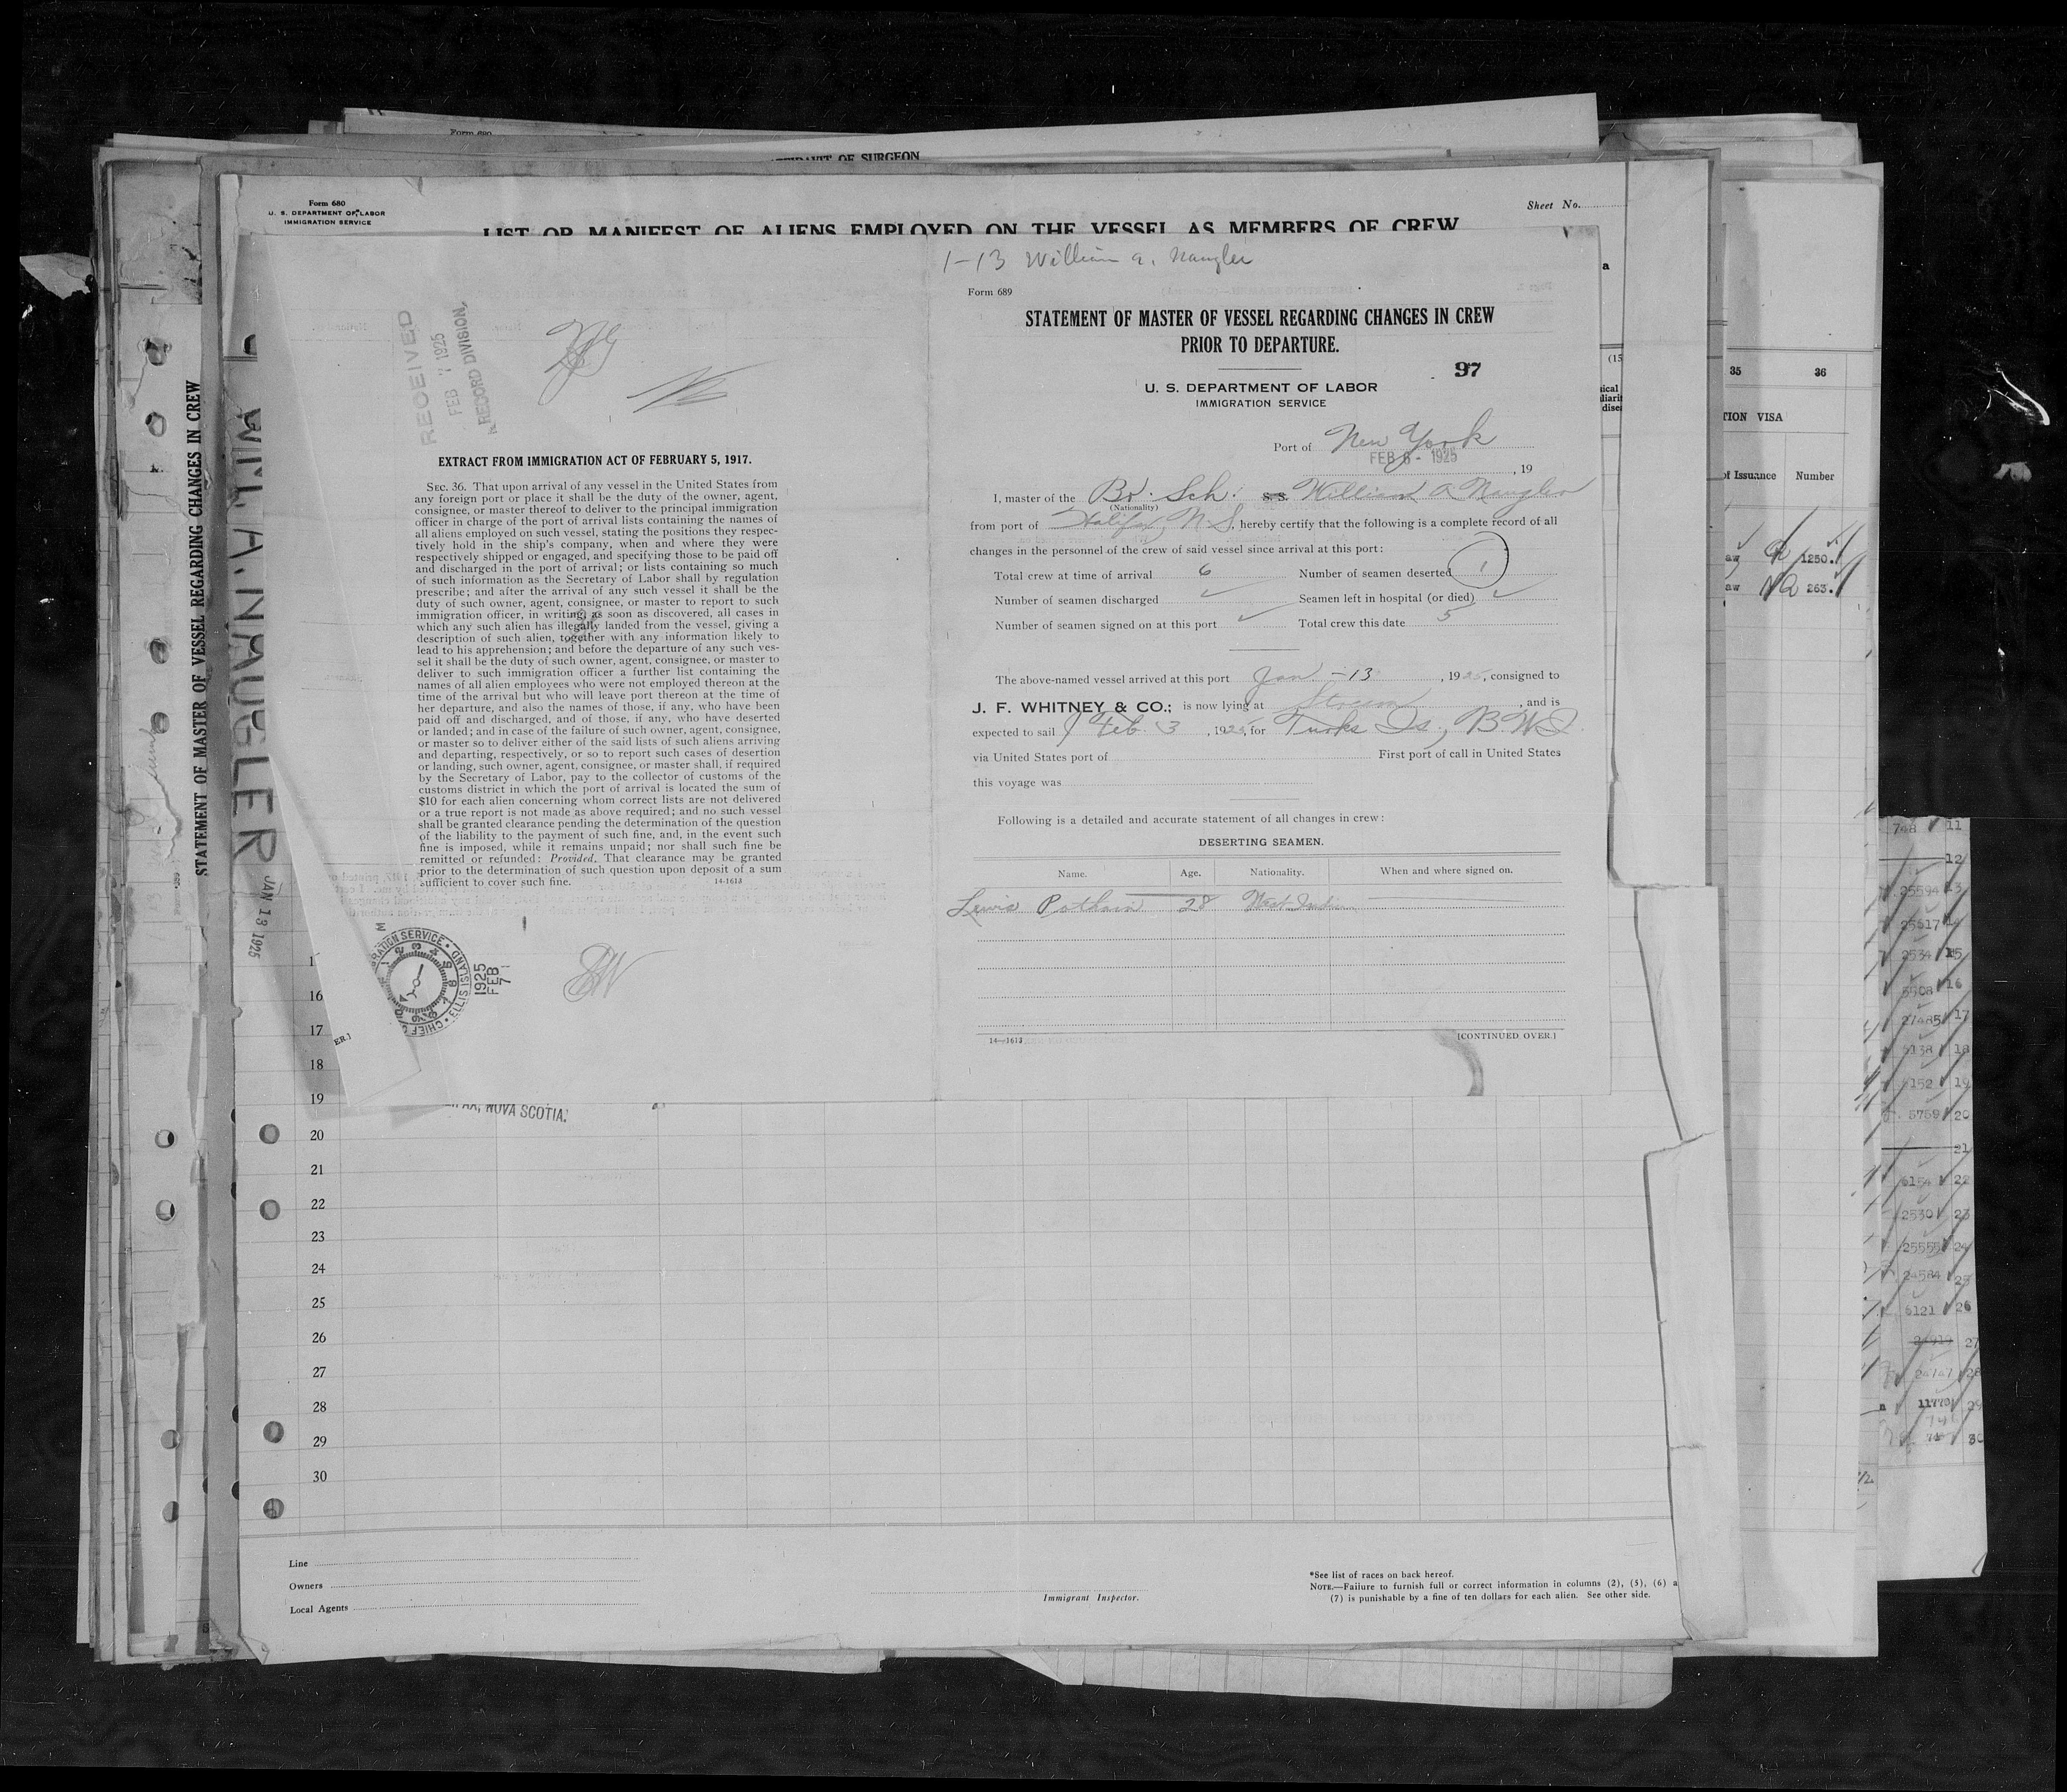 Form 680
AFFIDAVIT OF SURGEON
Form 680
U. S. DEPARTMENT OF LABOR
IMMIGRATION SERVICE
Sheet No.
LIST OR MANIFEST OF ALIENS EMPLOYED ON THE VESSEL AS MEMBERS OF CREW
STATEMENT OF MASTER OF VESSEL REGARDING CHANGES IN CREW
WILL A. NAUGLER JAN 13 1925
RECEIVED
FEB 7 1925
RECORD DIVISION
EXTRACT FROM IMMIGRATION ACT OF FEBRUARY 5, 1917.
SEC. 36. That upon arrival of any vessel in the United States from
any foreign port or place it shall be the duty of the owner, agent,
consignee, or master thereof to deliver to the principal immigration
officer in charge of the port of arrival lists containing the names of
all aliens employed on such vessel, stating the positions they respec-
tively hold in the ship's company, when and where they were
respectively shipped or engaged, and specifying those to be paid off
and discharged in the port of arrival; or lists containing so much
of such information as the Secretary of Labor shall by regulation
prescribe; and after the arrival of any such vessel it shall be the
duty of such owner, agent, consignee, or master to report to such
immigration officer, in writing, as soon as discovered, all cases in
which any such alien has illegally landed from the vessel, giving a
description of such alien, together with any information likely to
lead to his apprehension; and before the departure of any such ves-
sel it shall be the duty of such owner, agent, consignee, or master to
deliver to such immigration officer a further list containing the
names of all alien employees who were not employed thereon at the
time of the arrival but who will leave port thereon at the time of
her departure, and also the names of those, if any, who have been
paid off and discharged, and of those, if any, who have deserted
or landed; and in case of the failure of such owner, agent, consignee,
or master so to deliver either of the said lists of such aliens arriving
and departing, respectively, or so to report such cases of desertion
or landing, such owner, agent, consignee, or master shall, if required
by the Secretary of Labor, pay to the collector of customs of the
customs district in which the port of arrival is located the sum of
$10 for each alien concerning whom correct lists are not delivered
or a true report is not made as above required; and no such vessel
shall be granted clearance pending the determination of the question
of the liability to the payment of such fine, and, in the event such
fine is imposed, while it remains unpaid; nor shall such fine be
remitted or refunded: Provided, That clearance may be granted
prior to the determination of such question upon deposit of a sum
sufficient to cover such fine.
14-1613
ELLIS ISLAND
1925
FEB
7
ER.]
1-13 William A. Naugler
Form 689
STATEMENT OF MASTER OF VESSEL REGARDING CHANGES IN CREW
PRIOR TO DEPARTURE.
97
U. S. DEPARTMENT OF LABOR
IMMIGRATION SERVICE
Port of New York
FEB 6 - 1925 , 19
I, master of the Br. Sch. S.S. William A Naugler
(Nationality)
from port of Halifax, N.S, hereby certify that the following is a complete record of all
changes in the personnel of the crew of said vessel since arrival at this port:
Total crew at time of arrival 6 Number of seamen deserted 1
Number of seamen discharged ✓ Seamen left in hospital (or died) ✓
Number of seamen signed on at this port ✓ Total crew this date 5
The above-named vessel arrived at this port Jan - 13 , 1925, consigned to
J. F. WHITNEY & CO.; is now lying at Stream , and is
expected to sail Feb. 3 , 1925, for Turks Is., B.W.I.
via United States port of First port of call in United States
this voyage was
Following is a detailed and accurate statement of all changes in crew:
DESERTING SEAMEN.
Name. Age. Nationality. When and where signed on.
Lewis 28 West Indies
14-1613 [CONTINUED OVER.]
16
17
18
19
HALIFAX, NOVA SCOTIA.
20
21
22
23
24
25
26
27
28
29
30
Line
Owners
Local Agents
Immigrant Inspector.
*See list of races on back hereof.
NOTE.—Failure to furnish full or correct information in columns (2), (5), (6) a
(7) is punishable by a fine of ten dollars for each alien. See other side.
35 36
TION VISA
of Issuance Number
aw 1250.
aw 263.
748 11
12
25594 13
25617 14
2534 15
5508 16
27485 17
5138 18
6152 19
5759 20
21
6154 22
2530 23
25555 24
24584 25
6121 26
27
24747 28
11773 29
30